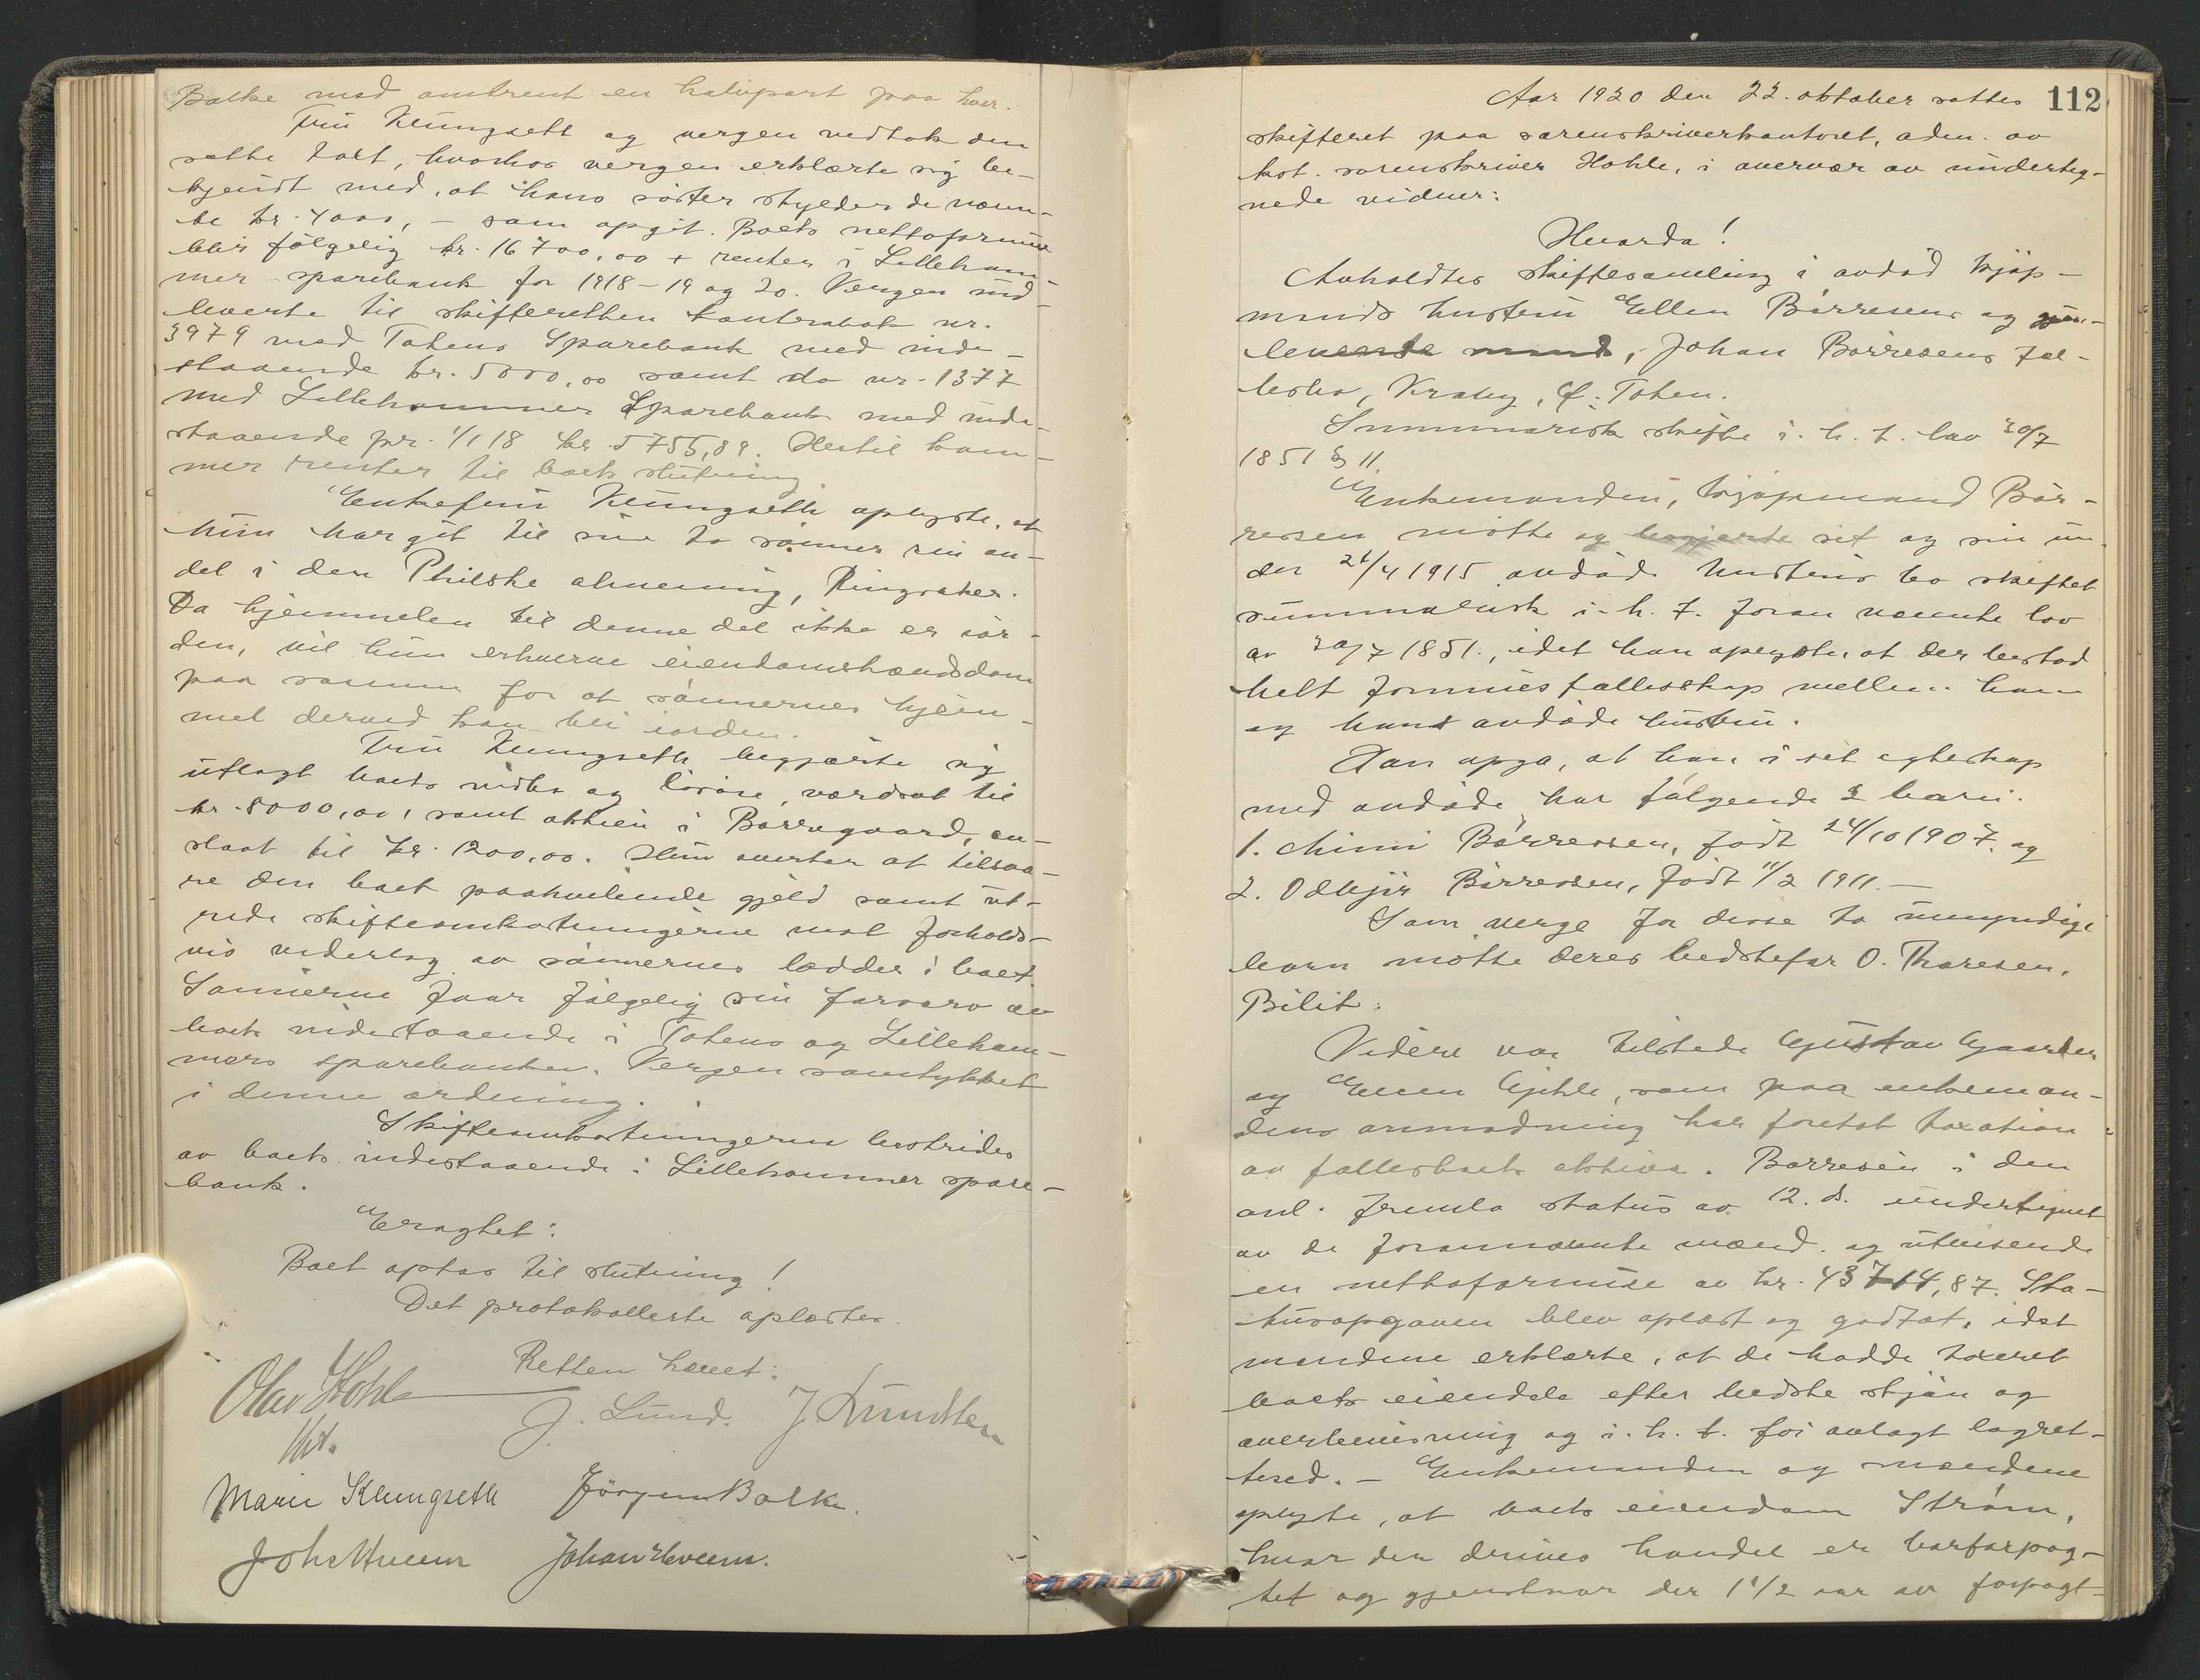 Balke med omtrent en halvpart paa hver.
Fru Klungseth og vergen vedtok den
satte taxt, hvorhos vergen erklærte sig be-
kjendt med, at hans söster skylder de nævn-
te kr. 4000,- som opgit. Boets nettoformue
blir fölgelig kr. 16700,00 + renter i Lilleham-
mer sparebank for 1918-19 og 20. Vergen ind-
leverte til skifteretten kontrabok nr.
3979 med Totens Sparebank med inde-
staaende kr. 5000,00 samt do nr. 1377
med Lillehammer Sparebank med inde-
staaende pr. 1/1 18 kr. 5755,89. Hertil kom-
mer renter til boets slutning
Enkefru Klungseth oplyste, at
hun har git til sine to sönner sin an-
del i den Philske almenning, Ringsaker.
Da hjemmelen til denne del ikke er ior-
den, vil hun erhverve eiendomshævdsdom
paa samme for at sönnernes hjem-
mel derved kan bli iorden.
Fru Klungseth begjærte sig
utlagt boets indbo og lösöre, værdsat til
kr. 8000,00, samt aktien i Borregaard, an-
slaat til kr. 1200,00. Hun overtar at tilsva-
re den boet paahvilende gjeld samt ut-
rede skifteomkostningerne mot forholds-
vis vederlag av sönnernes lodder i boet.
Sönnerne faar fölgelig sin farsarv av
boets indestaaende i Totens og Lilleham-
mers sparebanker. Vergen samtykket
i denne ordning.
Skifteomkostningerne bestrides
av boets indestaaende i Lillehammer spare-
bank.
Eragtet:
Boet optas til slutning!
Det protokollerte oplæstes.
Retten hævet:
Olav Hohle
kst.
J. Lund. J Lundsten
Marie Klungseth Jörgen Balke.
Johs Hveem Johan Hveem.
112
Aar 1920 den 22. oktober sattes
skifteret paa sorenskriverkontoret, adm. av
kst. sorenskriver Hohle, i overvær av underteg-
nede vidner:
Hvorda!
Anholdtes skiftesamling i avdöd kjöp-
mands hustru Ellen Börresens og gjen-
levende mand, Johan Börresens fæl-
lesbo, Kraby, Ö. Toten.
Summarisk skifte i. h. t. lov 30/7
1851 § 11.
Enkemanden, kjöpmand Bör-
resen mötte og begjærte sit og sin un-
der 21/4 1915 avdöde hustrus bo skiftet
summarisk i. h. t. foran nævnte lov
av 30/7 1851., idet han oplyste, at der bestod
helt formuesfællesskap mellem ham
og hans avdöde hustru.
Han opga, at han i sit egteskap
med avdöde har fölgende 2 barn:
1. Mimi Börresen, födt 24/10 1907. og
2. Odbjör Börresen, födt 11/2 1911.-
Som verge for disse to umyndige
barn mötte deres bedstefar O. Thoresen,
Bilit:
Videre var tilstede Gustav Gaarder
og Even Gjehle, som paa enkeman-
dens anmodning har foretat taxation
av fællesboets aktiva. Börresen i den
anl. fremla status av 12. ds. undertegnet
av de forannævnte mænd. og utvisende
en nettoformue av kr. 43714,87. Sta-
tusopgaven blev oplæst og godtat, idet
mændene erklærte, at de hadde taxeret
boets eiendele efter bedste skjön og
overbevisning og i. h. t. för avlagt lagret-
tesed.- Enkemanden og mændene
oplyste, at boets eiendom Ström,
hvor der drives handel er bortforpag-
tet og gjenstaar der 1 1/2 aar av forpagt-